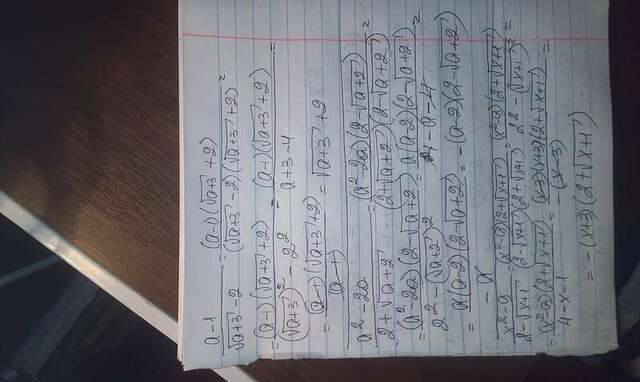 a-1/(√a+3 -2) = (a-1)(√a+3 +2)/((√a+3 -2)(√a+3 +2)) =
= (a-1)(√a+3 +2)/((√a+3)² -2²) = (a-1)(√a+3 +2)/(a+3-4) =
= (a-1)(√a+3 +2)/(a-1) = √a+3 +2
a²-2a/(2+√a+2) = (a²-2a)(2-√a+2)/((2+√a+2)(2-√a+2)) =
= (a²-2a)(2-√a+2)/(2²-(√a+2)²) = a(a-2)(2-√a+2)/(4-a-4) =
= a(a-2)(2-√a+2)/(-a) = -(a-2)(2-√a+2)
x²-9/(2-√x+1) = (x²-9)(2+√x+1)/((2-√x+1)(2+√x+1)) = (x²-9)(2+√x+1)/(2²-(√x+1)²) =
= (x²-9)(2+√x+1)/(4-x-1) = (x-3)(x+3)(2+√x+1)/(-(x-3)) =
= -(x+3)(2+√x+1)